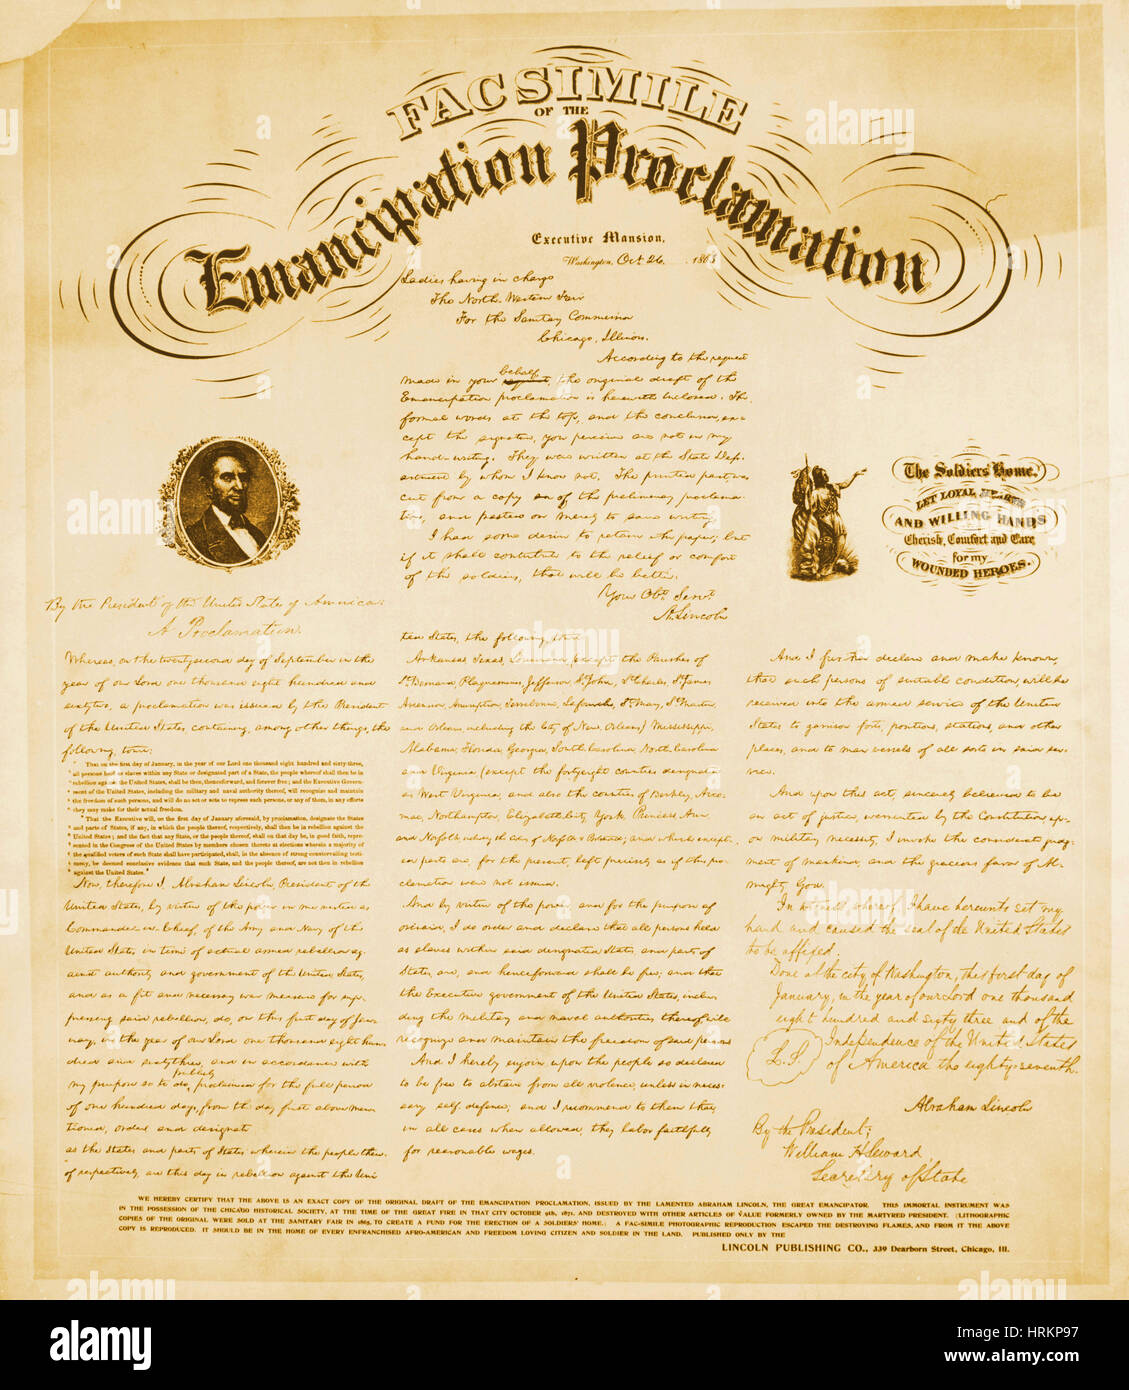 FACSIMILE
OF THE
Emancipation Proclamation
Executive Mansion,
Washington, Oct. 26, 1863
Ladies having in charge
The North-Western Fair
For the Sanitary Commission
Chicago, Illinois.
According to the request
made in your behalf, the original draft of the
Emancipation proclamation is herewith enclosed. The
formal words at the top, and the conclusion, ex-
cept the signature, you perceive are not in my
hand-writing. They was written at the State Dep-
artment by whom I know not. The printed part was
cut from a copy of the preliminary proclama-
tion, and pasted on merely to save writing.
I had some desire to retain the paper; but
if it shall contribute to the relief or comfort
of the soldiers, that will be better.
Your Obt. Servt.
A. Lincoln
The Soldiers' Home.
LET LOYAL HEARTS
AND WILLING HANDS
Cherish, Comfort and Care
for my
WOUNDED HEROES.
By the President of the United States of America:
A Proclamation.
Whereas, on the twenty-second day of September, in the
year of our Lord one thousand eight hundred and
sixty two, a proclamation was issued by the President
of the United States, containing, among other things, the
following, towit:
"That on the first day of January, in the year of our Lord one thousand eight hundred and sixty-three,
" all persons held as slaves within any State or designated part of a State, the people whereof shall then be in
" rebellion against the United States, shall be then, thenceforward, and forever free; and the Executive Govern-
" ment of the United States, including the military and naval authority thereof, will recognize and maintain
" the freedom of such persons, and will do no act or acts to repress such persons, or any of them, in any efforts
" they may make for their actual freedom.
" That the Executive will, on the first day of January aforesaid, by proclamation, designate the States
" and parts of States, if any, in which the people thereof, respectively, shall then be in rebellion against the
" United States; and the fact that any State, or the people thereof, shall on that day be, in good faith, repre-
" sented in the Congress of the United States by members chosen thereto at elections wherein a majority of
" the qualified voters of such State shall have participated, shall, in the absence of strong countervailing testi-
" mony, be deemed conclusive evidence that such State, and the people thereof, are not then in rebellion
" against the United States."
Now, therefore I, Abraham Lincoln, President of the
United States, by virtue of the power in me vested as
Commander-in-Chief, of the Army and Navy of the
United States, in time of actual armed rebellion ag-
ainst authority and government of the United States,
and as a fit and necessary war measure for sup-
pressing said rebellion, do, on this first day of Jan-
uary, in the year of our Lord one thousand eight hun-
dred and sixty three, and in accordance with
my purpose so to do, publicly proclaimed for the full period
of one hundred days, from the day first above men-
tioned, order and designate
as the States and parts of States wherein the people there-
of respectively, are this day in rebellion against the Uni-
ted States, the following, towit:
Arkansas, Texas, Louisiana, (except the Parishes of
St. Bernard, Plaquemines, Jefferson, St. John, St. Charles, St. James
Ascension, Assumption, Terrebonne, Lafourche, St. Mary, St. Martin,
and Orleans, including the City of New Orleans) Mississippi,
Alabama, Florida, Georgia, South Carolina, North Carolina
and Virginia (except the fortyeight counties designated
as West Virginia, and also the counties of Berkley, Acco-
mac, Northampton, Elizabeth City, York, Princess Ann,
and Norfolk, including the cities of Norfolk & Portsmouth); and which except-
ed parts are, for the present, left precisely as if this pro-
clamation were not issued.
And by virtue of the power, and for the purpose af-
oresaid, I do order and declare that all persons held
as slaves within said designated States, and parts of
States, are, and henceforward shall be free; and that
the Executive government of the United States, inclu-
ding the military and naval authorities thereof, will
recognize and maintain the freedom of said persons
And I hereby enjoin upon the people so declared
to be free to abstain from all violence, unless in neces-
sary self-defence; and I recommend to them that,
in all cases when allowed, they labor faithfully
for reasonable wages.
And I further declare and make known,
that such persons of suitable condition, will be
received into the armed service of the United
States to garrison forts, positions, stations, and other
places, and to man vessels of all sorts in said ser-
vice.
And upon this act, sincerely believed to be
an act of justice, warranted by the Constitution, up-
on military necessity, I invoke the considerate judg-
ment of mankind, and the gracious favor of Al-
mighty God.
In witness whereof, I have hereunto set my
hand and caused the seal of the United States
to be affixed.
Done at the city of Washington, this first day of
January, in the year of our Lord one thousand
eight hundred and sixty three and of the
Independence of the United States
L.S.
of America the eighty-seventh.
Abraham Lincoln
By the President;
William H. Seward
Secretary of State
WE HEREBY CERTIFY THAT THE ABOVE IS AN EXACT COPY OF THE ORIGINAL DRAFT OF THE EMANCIPATION PROCLAMATION, ISSUED BY THE LAMENTED ABRAHAM LINCOLN, THE GREAT EMANCIPATOR. THIS IMMORTAL INSTRUMENT WAS
IN THE POSSESSION OF THE CHICAGO HISTORICAL SOCIETY, AT THE TIME OF THE GREAT FIRE IN THAT CITY OCTOBER 9th, 1871, AND DESTROYED WITH OTHER ARTICLES OF VALUE FORMERLY OWNED BY THE MARTYRED PRESIDENT. (LITHOGRAPHIC
COPIES OF THE ORIGINAL WERE SOLD AT THE SANITARY FAIR IN 1865, TO CREATE A FUND FOR THE ERECTION OF A SOLDIERS' HOME.) A FAC-SIMILE PHOTOGRAPHIC REPRODUCTION ESCAPED THE DESTROYING FLAMES, AND FROM IT THE ABOVE
COPY IS REPRODUCED. IT SHOULD BE IN THE HOME OF EVERY ENFRANCHISED AFRO-AMERICAN AND FREEDOM LOVING CITIZEN AND SOLDIER IN THE LAND. PUBLISHED ONLY BY THE
LINCOLN PUBLISHING CO., 339 Dearborn Street, Chicago, Ill.
alamy
Image ID: HRKP97
www.alamy.com